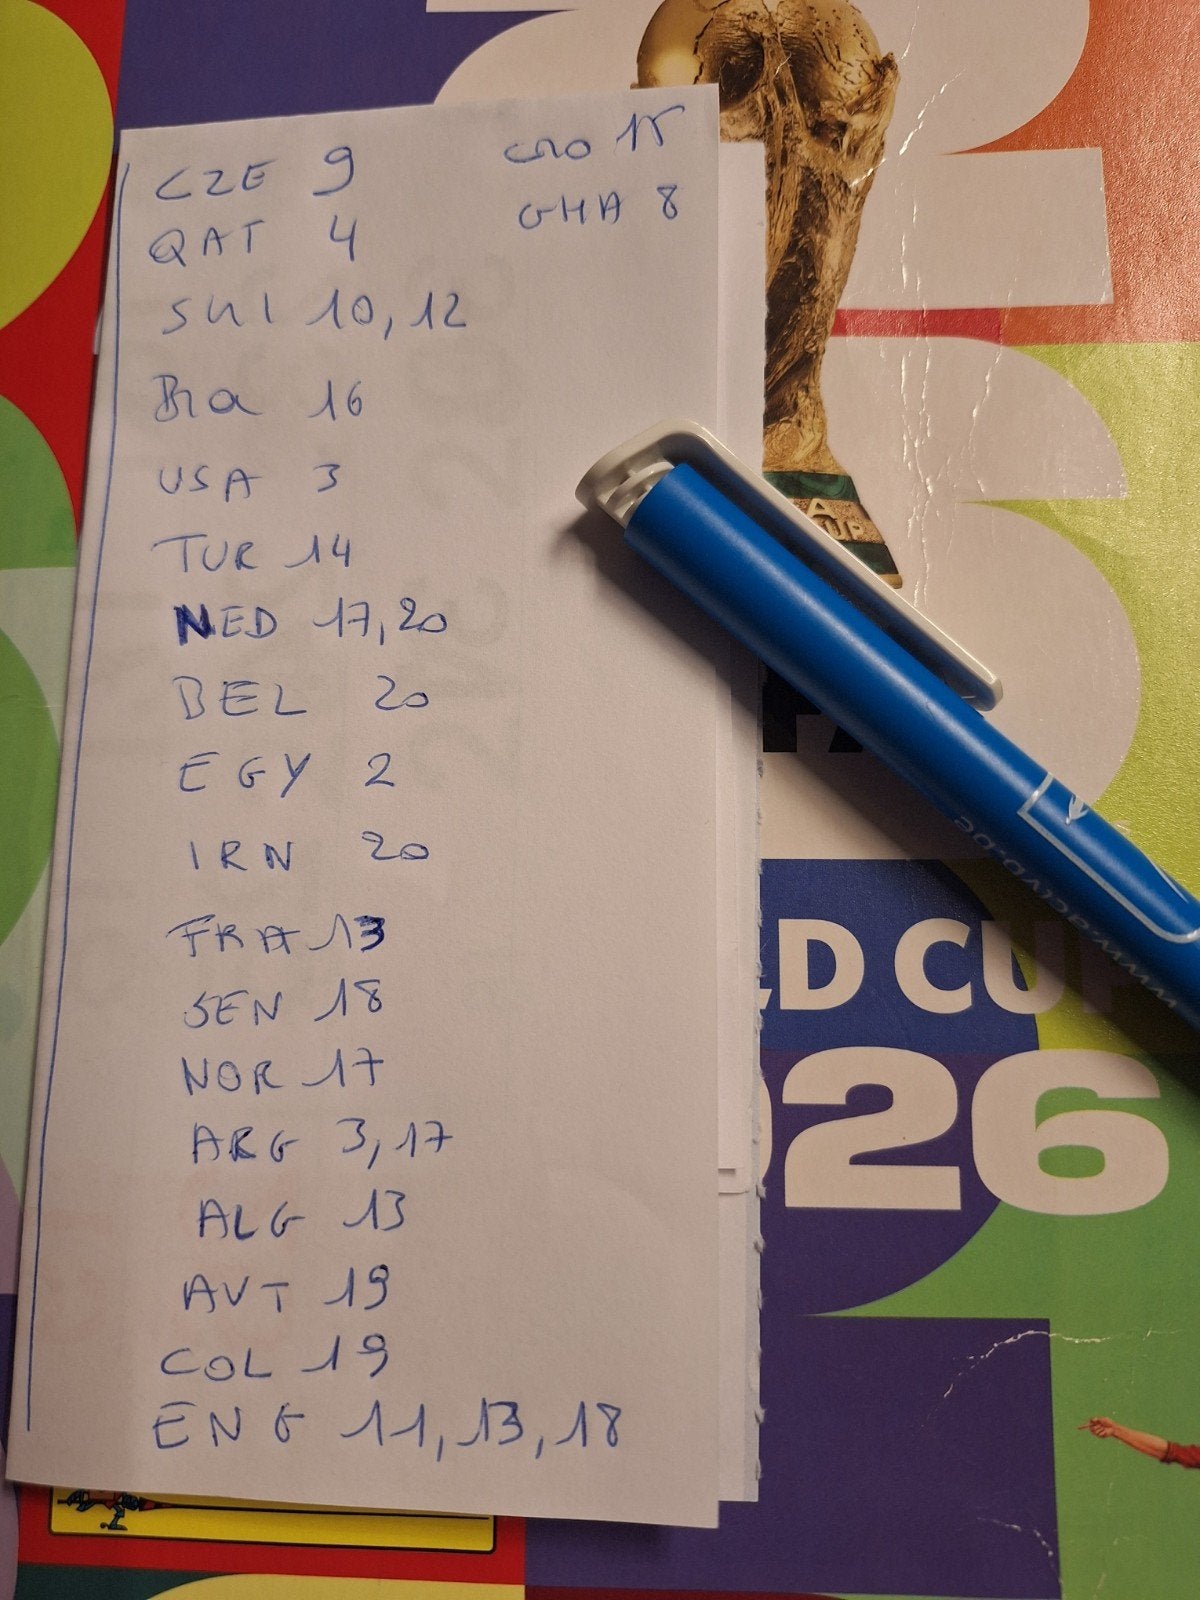 CZE 9
QAT 4
SUI 10, 12
Bra 16
USA 3
TUR 14
NED 17, 20
BEL 20
EGY 2
IRN 20
FRA 13
SEN 18
NOR 17
ARG 3, 17
ALG 13
AUT 19
COL 19
ENG 11, 13, 18
CRO 15
GHA 8
A
CUP
LD CUP
026
www.activo.de